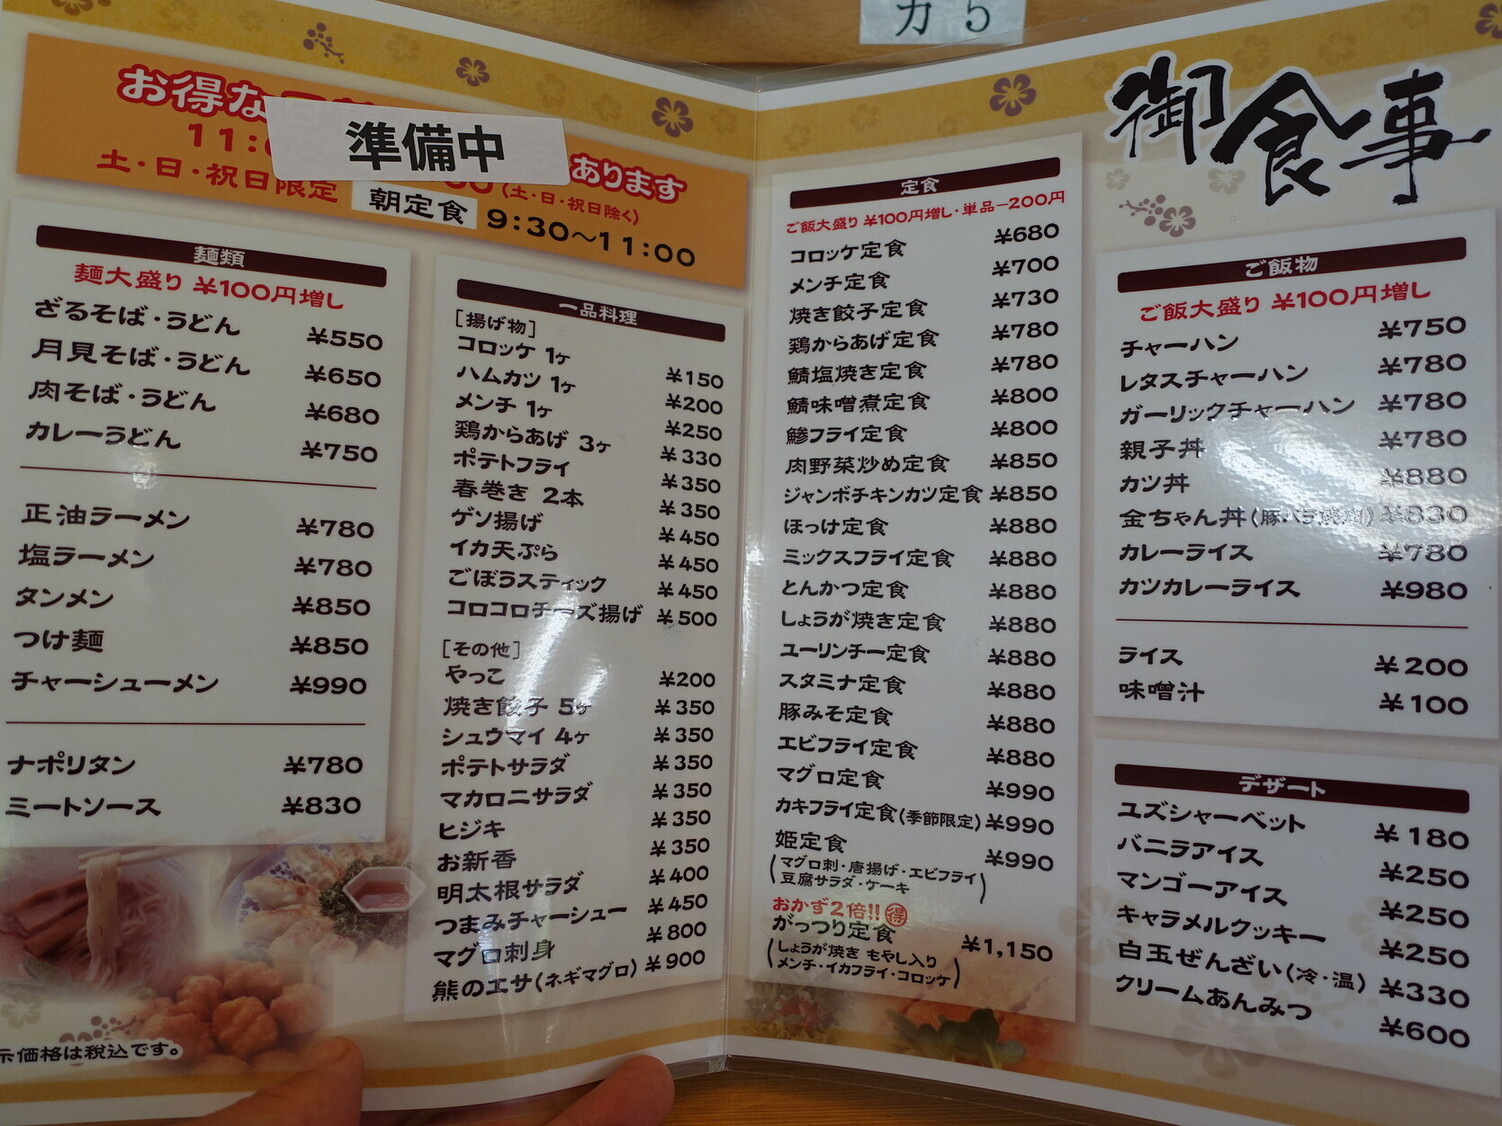 カ5
お得な
準備中
あります
11:
00(土・日・祝日除く)
土・日・祝日限定 朝定食 9:30〜11:00
麺類
麺大盛り ¥100円増し
ざるそば・うどん ¥550
月見そば・うどん ¥650
肉そば・うどん ¥680
カレーうどん ¥750
正油ラーメン ¥780
塩ラーメン ¥780
タンメン ¥850
つけ麺 ¥850
チャーシューメン ¥990
ナポリタン ¥780
ミートソース ¥830
示価格は税込です。
一品料理
[揚げ物]
コロッケ 1ヶ ¥150
ハムカツ 1ヶ ¥200
メンチ 1ヶ ¥250
鶏からあげ 3ヶ ¥330
ポテトフライ ¥350
春巻き 2本 ¥350
ゲソ揚げ ¥450
イカ天ぷら ¥450
ごぼうスティック ¥450
コロコロチーズ揚げ ¥500
[その他]
やっこ ¥200
焼き餃子 5ヶ ¥350
シュウマイ 4ヶ ¥350
ポテトサラダ ¥350
マカロニサラダ ¥350
ヒジキ ¥350
お新香 ¥350
明太根サラダ ¥400
つまみチャーシュー ¥450
マグロ刺身 ¥800
熊のエサ(ネギマグロ) ¥900
御食事
定食
ご飯大盛り ¥100円増し・単品−200円
コロッケ定食 ¥680
メンチ定食 ¥700
焼き餃子定食 ¥730
鶏からあげ定食 ¥780
鯖塩焼き定食 ¥780
鯖味噌煮定食 ¥800
鯵フライ定食 ¥800
肉野菜炒め定食 ¥850
ジャンボチキンカツ定食 ¥850
ほっけ定食 ¥880
ミックスフライ定食 ¥880
とんかつ定食 ¥880
しょうが焼き定食 ¥880
ユーリンチー定食 ¥880
スタミナ定食 ¥880
豚みそ定食 ¥880
エビフライ定食 ¥880
マグロ定食 ¥990
カキフライ定食(季節限定) ¥990
姫定食 ¥990
(マグロ刺・唐揚げ・エビフライ
豆腐サラダ・ケーキ)
おかず2倍!! 得
がっつり定食 ¥1,150
(しょうが焼き もやし入り
メンチ・イカフライ・コロッケ)
ご飯物
ご飯大盛り ¥100円増し
チャーハン ¥750
レタスチャーハン ¥780
ガーリックチャーハン ¥780
親子丼 ¥780
カツ丼 ¥880
金ちゃん丼(豚バラ ¥830
カレーライス ¥780
カツカレーライス ¥980
ライス ¥200
味噌汁 ¥100
デザート
ユズシャーベット ¥180
バニラアイス ¥250
マンゴーアイス ¥250
キャラメルクッキー ¥250
白玉ぜんざい(冷・温) ¥330
クリームあんみつ ¥600